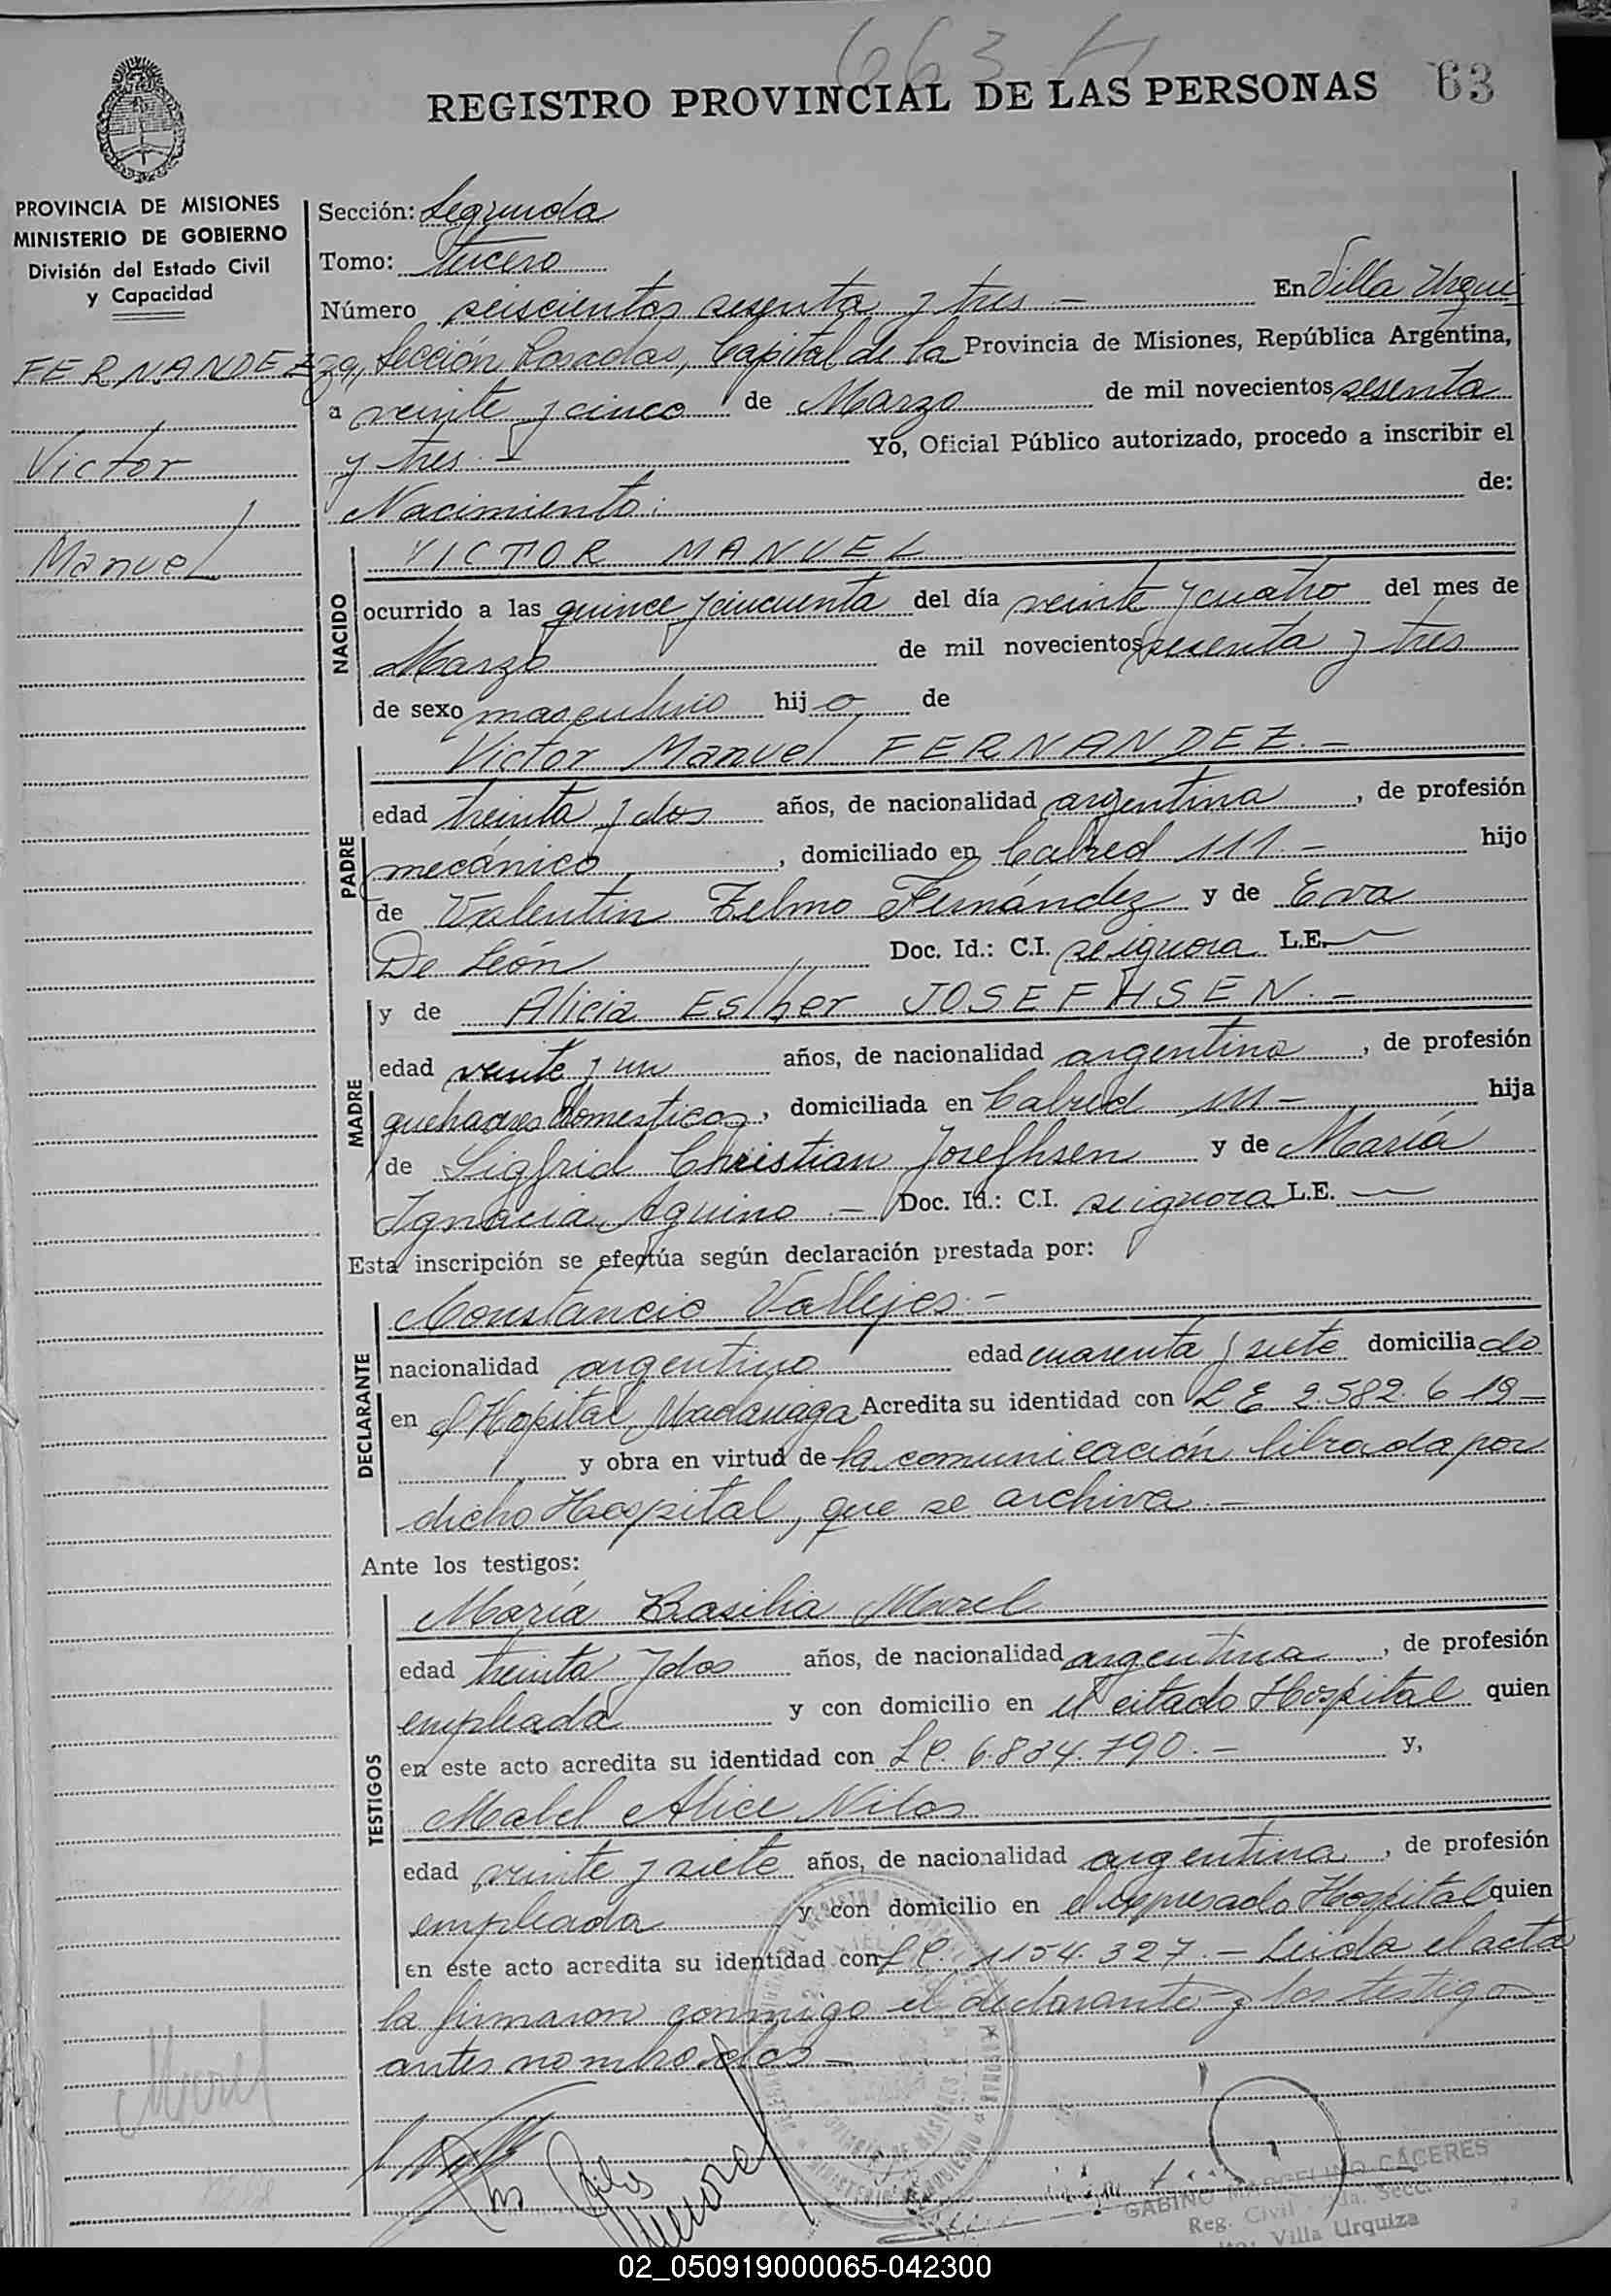 663
REGISTRO PROVINCIAL DE LAS PERSONAS 63
PROVINCIA DE MISIONES
MINISTERIO DE GOBIERNO
División del Estado Civil
y Capacidad
FERNANDEZ
Victor
Manuel
Sección: Segunda
Tomo: tercero
Número seiscientos sesenta y tres - En Villa Urqui
za, Sección Posadas, Capital de la Provincia de Misiones, República Argentina,
a veinte y cinco de Marzo de mil novecientos sesenta
y tres - Yo, Oficial Público autorizado, procedo a inscribir el
Nacimiento: de:
NACIDO
VICTOR MANUEL
ocurrido a las quince y cincuenta del día veinte y cuatro del mes de
Marzo de mil novecientos sesenta y tres
de sexo masculino hijo de
PADRE
Victor Manuel FERNANDEZ. -
edad treinta y dos años, de nacionalidad argentina, de profesión
mecánico, domiciliado en Cabred 111 - hijo
de Valentin Telmo Fernández y de Eva
De León Doc. Id.: C.I. se ignora L.E. —
MADRE
y de Alicia Esther JOSEFHSEN. -
edad veinte y un años, de nacionalidad argentina, de profesión
quehaceres domesticos, domiciliada en Cabred 111 - hija
de Sigfrid Christian Josefhsen y de María
Ignacia Aquino - Doc. Id.: C.I. se ignora L.E. —
Esta inscripción se efectúa según declaración prestada por:
DECLARANTE
Constancio Vallejos -
nacionalidad argentino edad cuarenta y siete domiciliado
en el Hospital Madariaga Acredita su identidad con L E 2.582.619 -
y obra en virtud de la comunicación librada por
dicho Hospital, que se archiva. -
Ante los testigos:
TESTIGOS
María Basilia Morel
edad treinta y dos años, de nacionalidad argentina, de profesión
empleada y con domicilio en el citado Hospital quien
en este acto acredita su identidad con L C. 6.834.790. - y,
Mabel Alice Nilos
edad veinte y siete años, de nacionalidad argentina, de profesión
empleada y con domicilio en el expresado Hospital quien
en este acto acredita su identidad con L C. 1154.327. - Leida el acta
la firmaron conmigo el declarante y los testigos
antes nombrados -
Morel
GABINO MARCELINO CACERES
Reg. Civil 2da. Secc.
Villa Urquiza
02_050919000065-042300